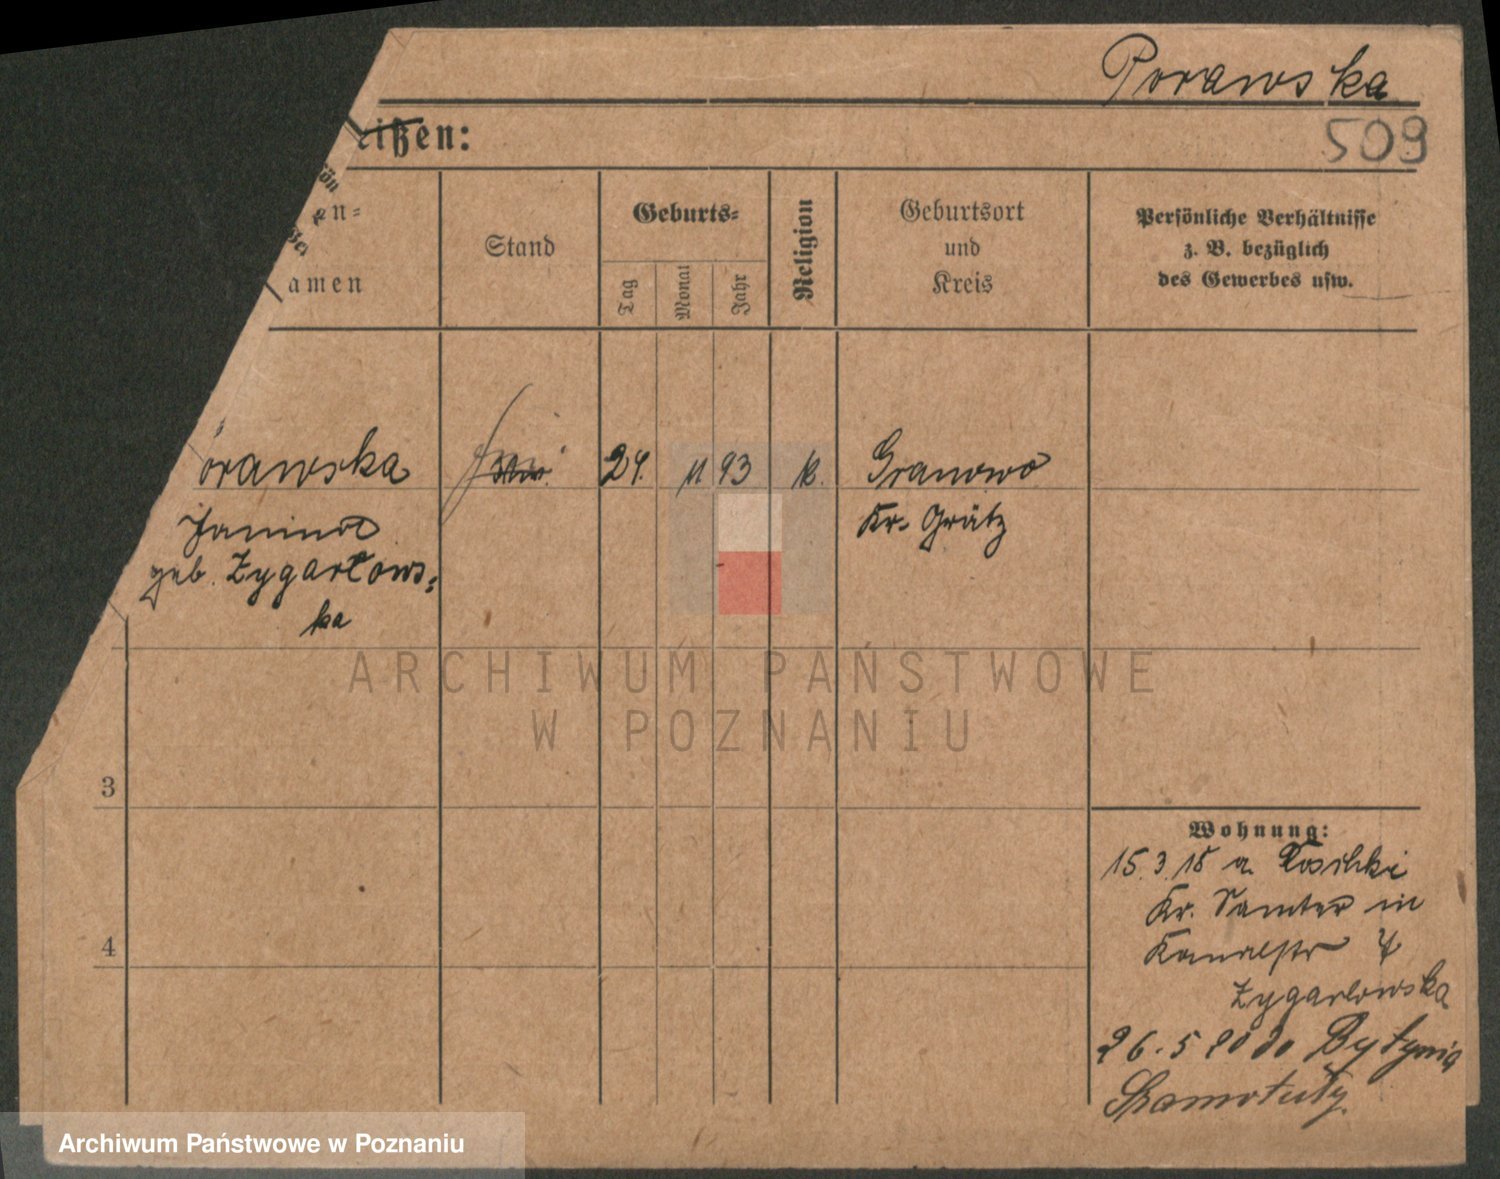 Porawska
509
eißen:
en=
amen
Stand
Geburts=
Tag
Monat
Jahr
Religion
Geburtsort
und
Kreis
Persönliche Verhältnisse
z. B. bezüglich
des Gewerbes usw.
orawska
24. 11 93 k. Granowo
Janina
Kr. Grätz
geb. Zygarlows=
ka
3
4
Wohnung:
15.3.18 a.
Kr. Samter in
Kanalstr
Zygarlowska
26.5 20 do Bytynia
Szamotuły.
ARCHIWUM PAŃSTWOWE
W POZNANIU
Archiwum Państwowe w Poznaniu